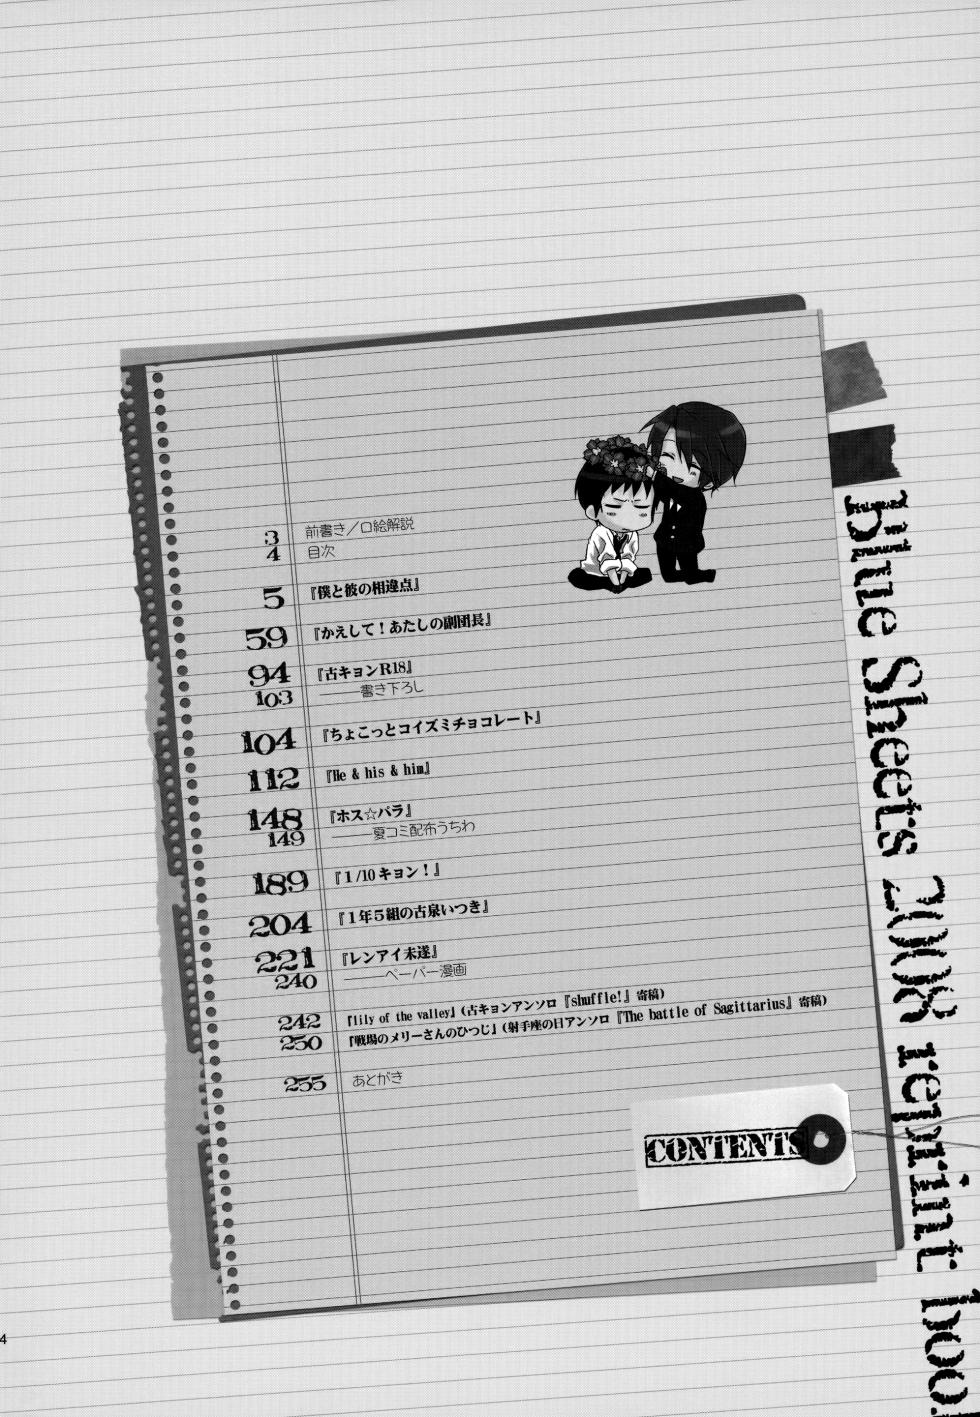 3 前書き／口絵解説
4 目次
5 『僕と彼の相違点』
59 『かえして！あたしの副団長』
94 『古キョンR18』
103 ――書き下ろし
104 『ちょこっとコイズミチョコレート』
112 『He & his & him』
148 『ホス☆パラ』
149 ――夏コミ配布うちわ
189 『1/10キョン！』
204 『1年5組の古泉いつき』
221 『レンアイ未遂』
240 ――ペーパー漫画
242 『lily of the valley』(古キョンアンソロ『shuffle!』寄稿)
250 『戦場のメリーさんのひつじ』(射手座の日アンソロ『The battle of Sagittarius』寄稿)
255 あとがき
CONTENTS
Blue Sheets 2008 reprint boo
4